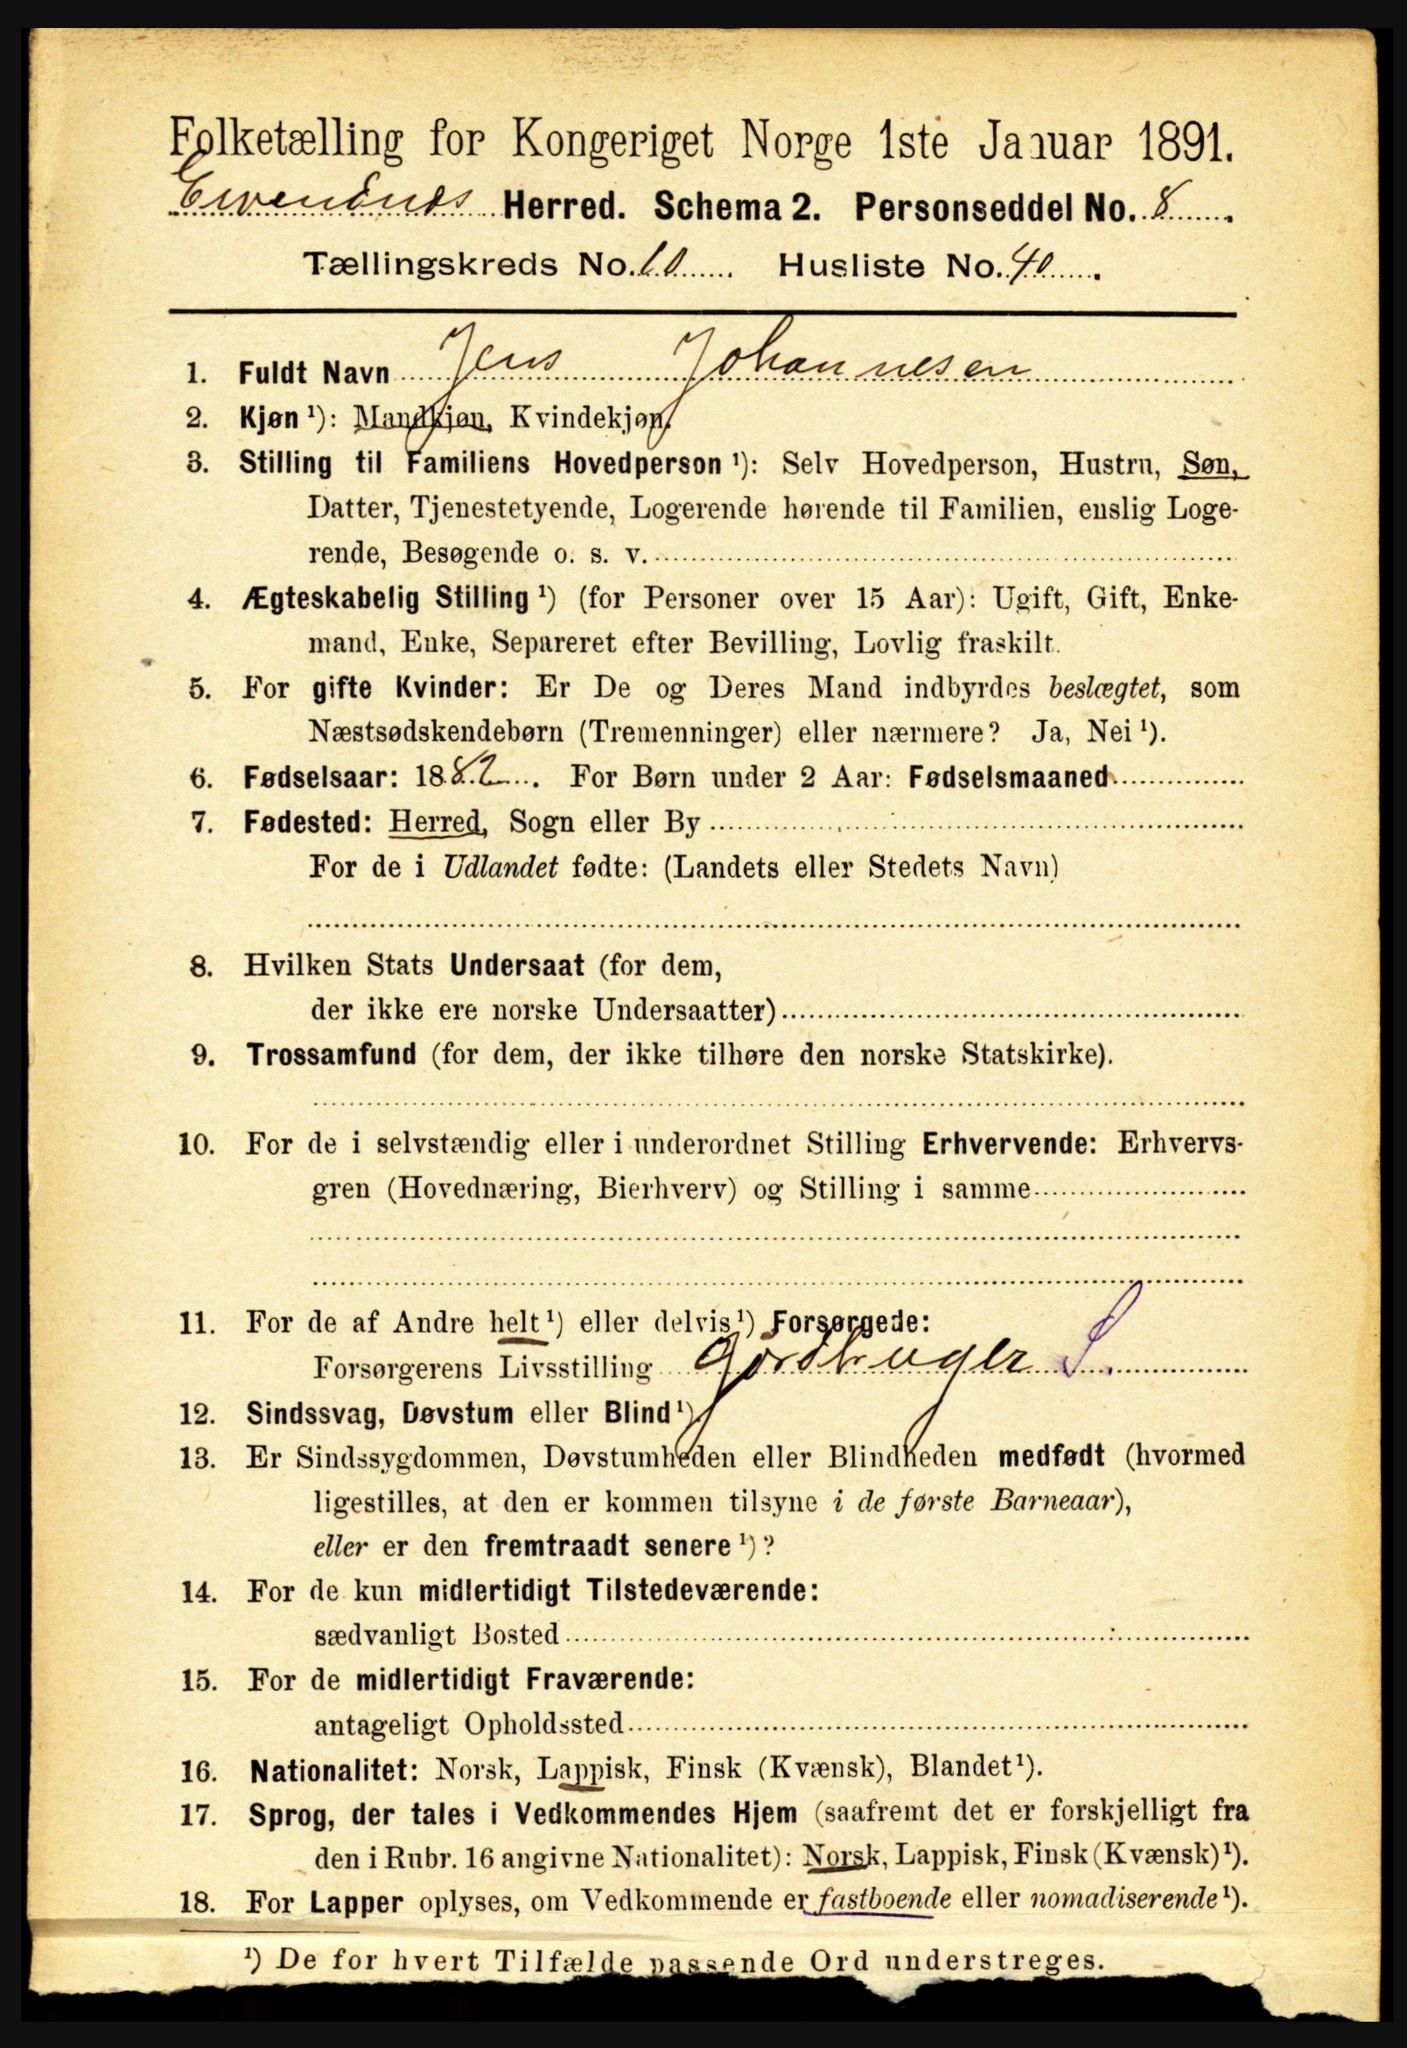 Folketælling for Kongeriget Norge 1ste Januar 1891.
Evenenes Herred. Schema 2. Personseddel No. 8.
Tællingskreds No. 10. Husliste No. 40.
1. Fuldt Navn Jens Johannesen
2. Kjøn ¹): Mandkjøn, Kvindekjøn.
3. Stilling til Familiens Hovedperson ¹): Selv Hovedperson, Hustru, Søn,
Datter, Tjenestetyende, Logerende hørende til Familien, enslig Loge-
rende, Besøgende o. s. v.
4. Ægteskabelig Stilling ¹) (for Personer over 15 Aar): Ugift, Gift, Enke-
mand, Enke, Separeret efter Bevilling, Lovlig fraskilt.
5. For gifte Kvinder: Er De og Deres Mand indbyrdes beslægtet, som
Næstsødskendebørn (Tremenninger) eller nærmere? Ja, Nei ¹).
6. Fødselsaar: 1882. For Børn under 2 Aar: Fødselsmaaned
7. Fødested: Herred, Sogn eller By
For de i Udlandet fødte: (Landets eller Stedets Navn)
8. Hvilken Stats Undersaat (for dem,
der ikke ere norske Undersaatter)
9. Trossamfund (for dem, der ikke tilhøre den norske Statskirke).
10. For de i selvstændig eller i underordnet Stilling Erhvervende: Erhvervs-
gren (Hovednæring, Bierhverv) og Stilling i samme
11. For de af Andre helt ¹) eller delvis ¹) Forsørgede:
Forsørgerens Livsstilling Gårdbruger S.
12. Sindssvag, Døvstum eller Blind ¹).
13. Er Sindssygdommen, Døvstumheden eller Blindheden medfødt (hvormed
ligestilles, at den er kommen tilsyne i de første Barneaar),
eller er den fremtraadt senere ¹)?
14. For de kun midlertidigt Tilstedeværende:
sædvanligt Bosted
15. For de midlertidigt Fraværende:
antageligt Opholdssted
16. Nationalitet: Norsk, Lappisk, Finsk (Kvænsk), Blandet ¹).
17. Sprog, der tales i Vedkommendes Hjem (saafremt det er forskjelligt fra
den i Rubr. 16 angivne Nationalitet): Norsk, Lappisk, Finsk (Kvænsk) ¹).
18. For Lapper oplyses, om Vedkommende er fastboende eller nomadiserende ¹).
¹) De for hvert Tilfælde passende Ord understreges.